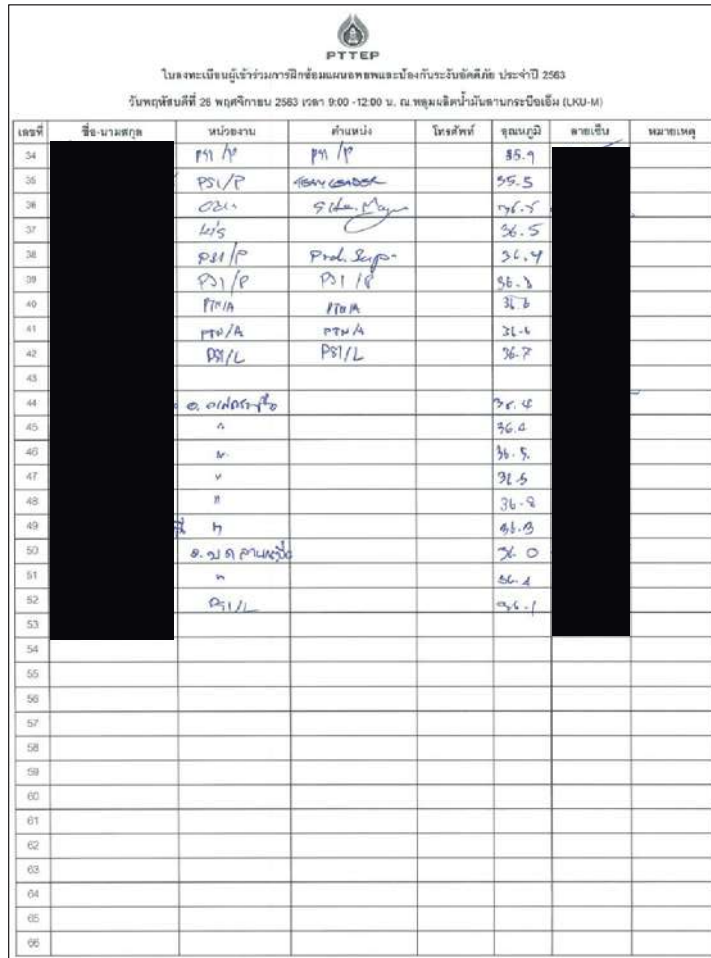 PTTEP
ใบลงทะเบียนผู้เข้าร่วมการฝึกซ้อมแผนอพยพและป้องกันระงับอัคคีภัย ประจำปี 2563
วันพฤหัสบดีที่ 26 พฤศจิกายน 2563 เวลา 9:00 -12:00 น. ณ.หลุมผลิตน้ำมันลานกระบือเอ็ม (LKU-M)
เลขที่ ชื่อ-นามสกุล หน่วยงาน ตำแหน่ง โทรศัพท์ อุณหภูมิ ลายเซ็น หมายเหตุ
34 PS1/P PS1/P 35.9
35 PS1/P TEAM LEADER 35.5
36
37 36.5
38 PS1/P Prod. Sup. 36.4
39 PS1/P PS1/P 36.3
40 PTN/A PTN/A 36.6
41 PTN/A PTN/A 36.6
42 PS1/L PS1/L 36.7
43
44 36.4
45 " 36.4
46 " 36.5
47 " 36.5
48 " 36.8
49 " 36.3
50 36.0
51 " 36.4
52 PS1/L 36.1
53
54
55
56
57
58
59
60
61
62
63
64
65
66